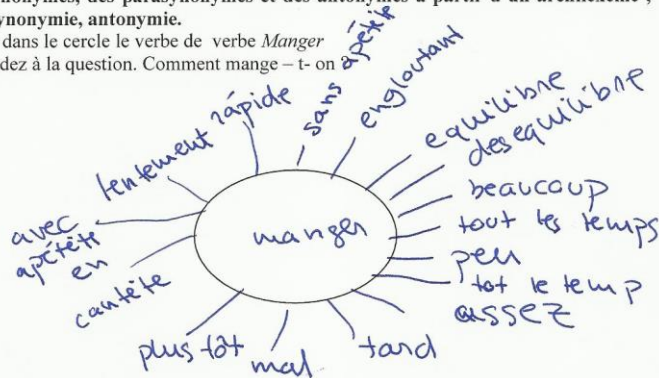 synonymes, des parasynonymes et des antonymes à partir d'un archilexème ;
synonymie, antonymie.
dans le cercle le verbe de verbe Manger
dez à la question. Comment mange – t- on ?
manger
avec apétète
lentement
rápide
sans apétète
engloutant
equilibre
desequilibre
beaucoup
tout les temps
peu
tot le temp
assez
tard
mal
plus tôt
en cantète